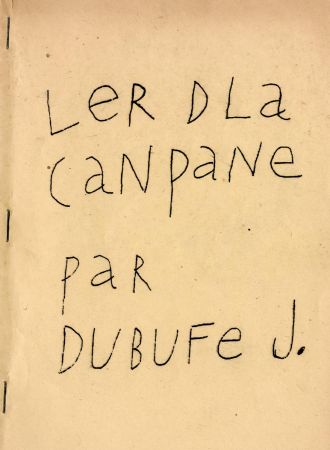 LeR DLa
CaNpaNe
paR
DUBUFe J.